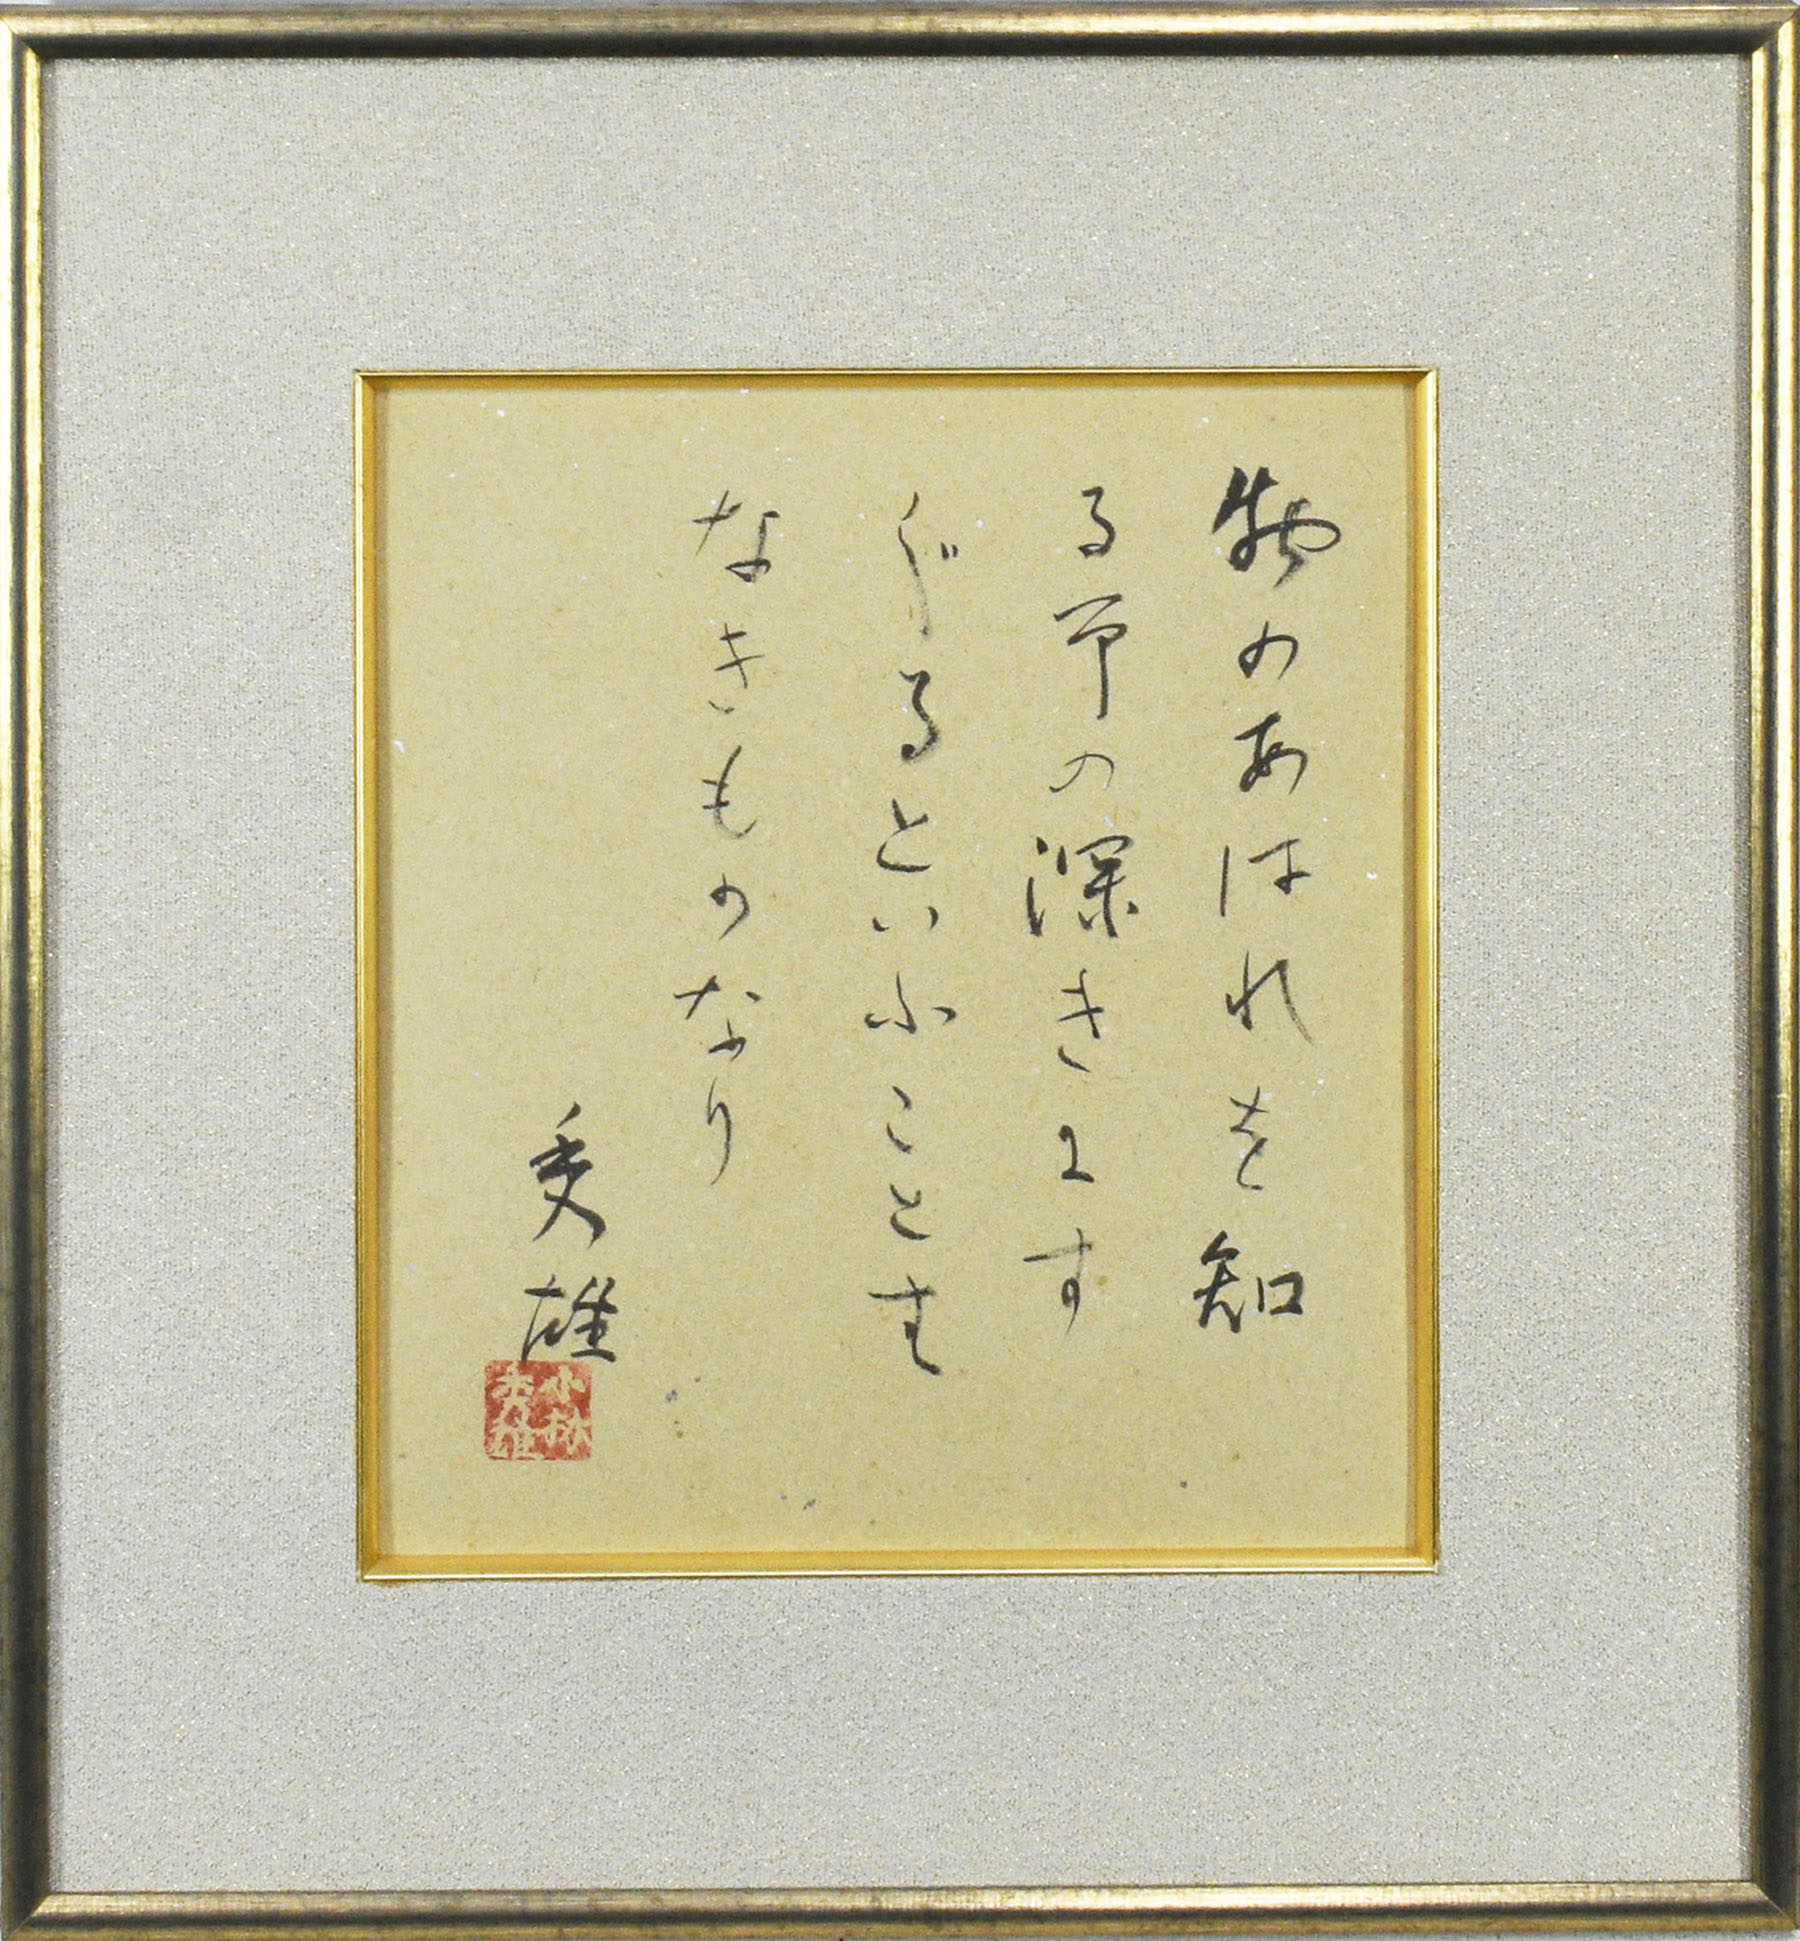 物のあはれを知
る事の深きにす
ぐるといふことは
なきものなり
秀雄
小林
秀雄